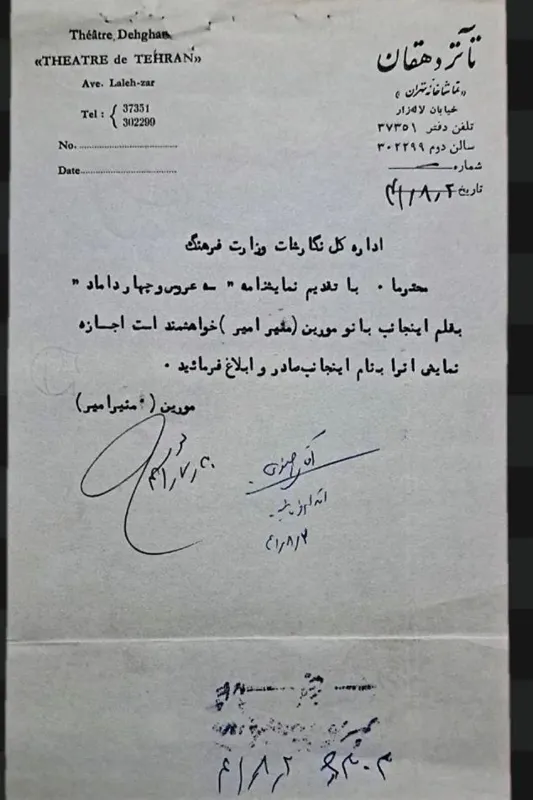 Théâtre Dehghan
«THEATRE de TEHRAN»
Ave. Laleh-zar
Tel : { 37351
302299
No.
Date
تآتر دهقان
«تماشاخانه تهران»
خیابان لاله‌زار
تلفن دفتر ۳۷۳۵۱
سالن دوم ۳۰۲۲۹۹
شماره
تاریخ ۴۱/۸/۲
اداره کل نگارشات وزارت فرهنگ
محترما . با تقدیم نمایشنامه " سه عروس و چهار داماد "
بقلم اینجانب بانو مورین (منیر امیر) خواهشمند است اجازه
نمایش آنرا بنام اینجانب صادر و ابلاغ فرمائید .
مورین ( منیر امیر)
آقای
۴۱/۸/۲
۴۱/۸/۲